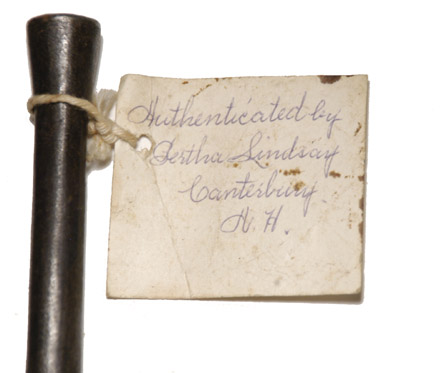 Authenticated by
Bertha Lindsay
Canterbury
N. H.